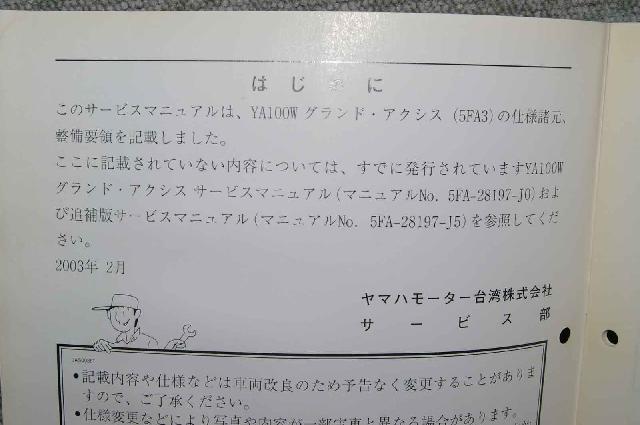 はじめに
このサービスマニュアルは、YA100W グランド・アクシス (5FA3) の仕様諸元、
整備要領を記載しました。
ここに記載されていない内容については、すでに発行されていますYA100W
グランド・アクシス サービスマニュアル (マニュアルNo. 5FA-28197-J0) およ
び追補版サービスマニュアル (マニュアルNo. 5FA-28197-J5) を参照してくだ
さい。
2003年 2月
ヤマハモーター台湾株式会社
サービス部
•記載内容や仕様などは車両改良のため予告なく変更することがありま
すので、ご了承ください。
•仕様変更などにより写真や内容が一部実車と異なる場合があります。